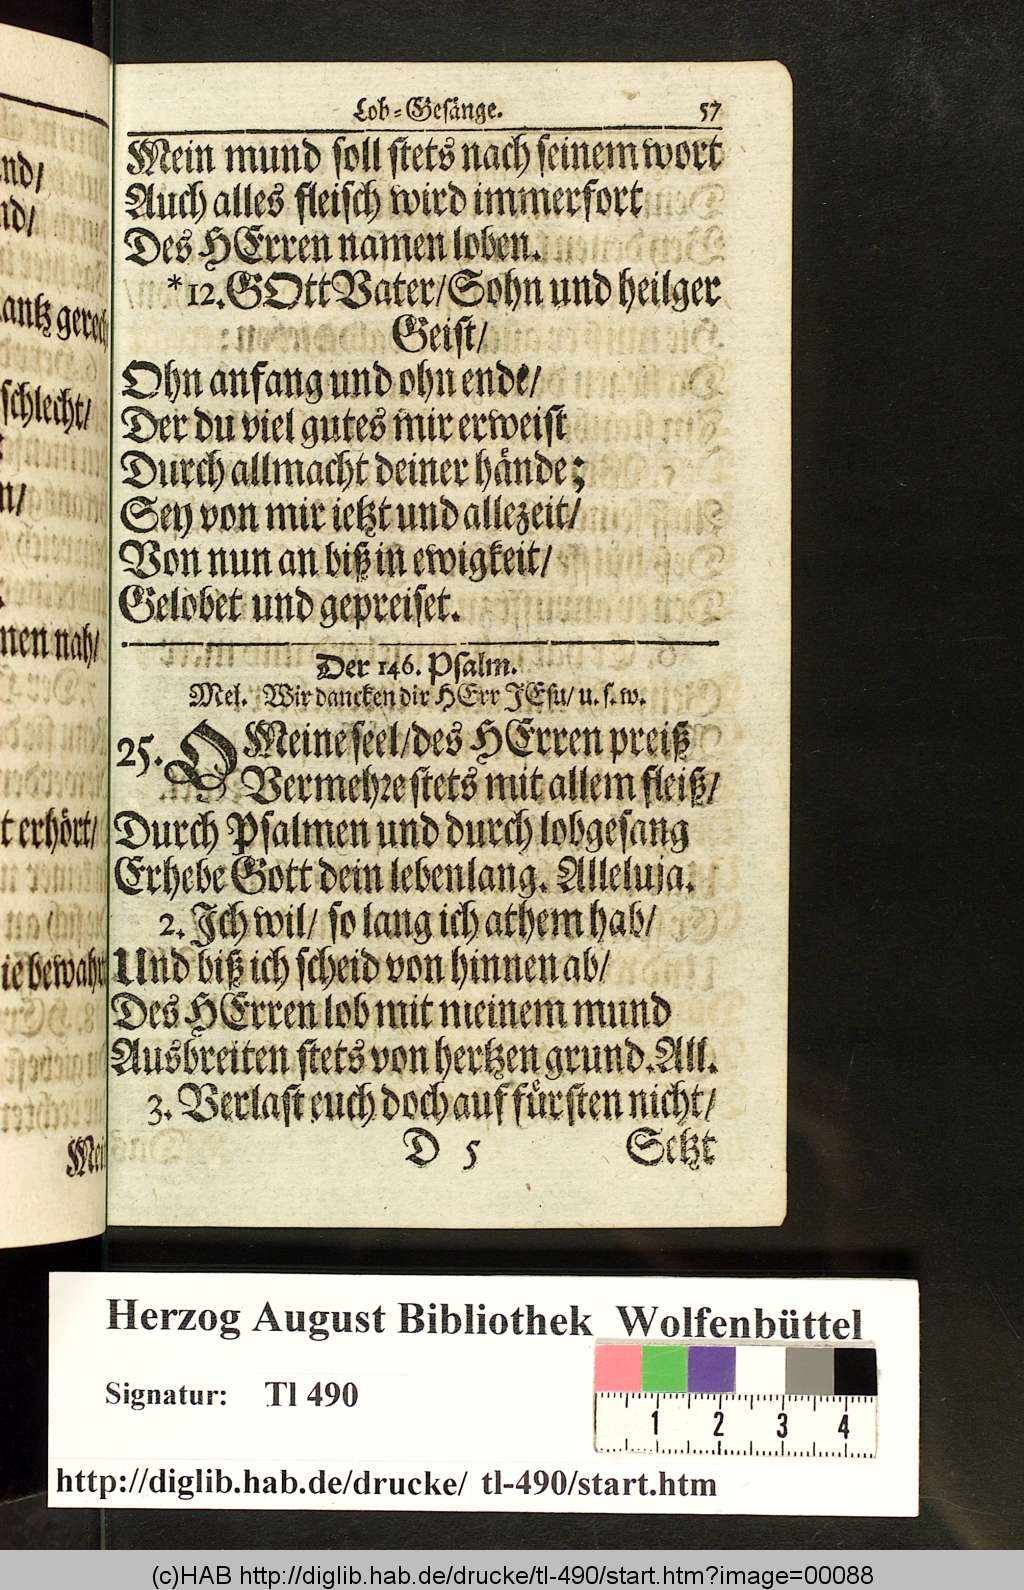 nd/
nd/
antz gerech
schlecht/
n/
nen nah/
t erhört/
ie bewahr
Mei
Lob-Gesänge. 57
Mein mund soll stets nach seinem wort
Auch alles fleisch wird immerfort
Des HErren namen loben.
*12. GOtt Vater/ Sohn und heilger
Geist/
Ohn anfang und ohn ende/
Der du viel gutes mir erweist
Durch allmacht deiner hände;
Sey von mir ietzt und allezeit/
Von nun an biß in ewigkeit/
Gelobet und gepreiset.
Der 146. Psalm.
Mel. Wir dancken dir HErr JEsu/ u. s. w.
25. O Meine seel/ des HErren preiß
Vermehre stets mit allem fleiß/
Durch Psalmen und durch lobgesang
Erhebe Gott dein lebenlang. Alleluja.
2. Ich wil/ so lang ich athem hab/
Und biß ich scheid von hinnen ab/
Des HErren lob mit meinem mund
Ausbreiten stets von hertzen grund. All.
3. Verlast euch doch auf fürsten nicht/
D 5 Setzt
Herzog August Bibliothek Wolfenbüttel
Signatur: Tl 490
1 2 3 4
http://diglib.hab.de/drucke/ tl-490/start.htm
(c)HAB http://diglib.hab.de/drucke/tl-490/start.htm?image=00088